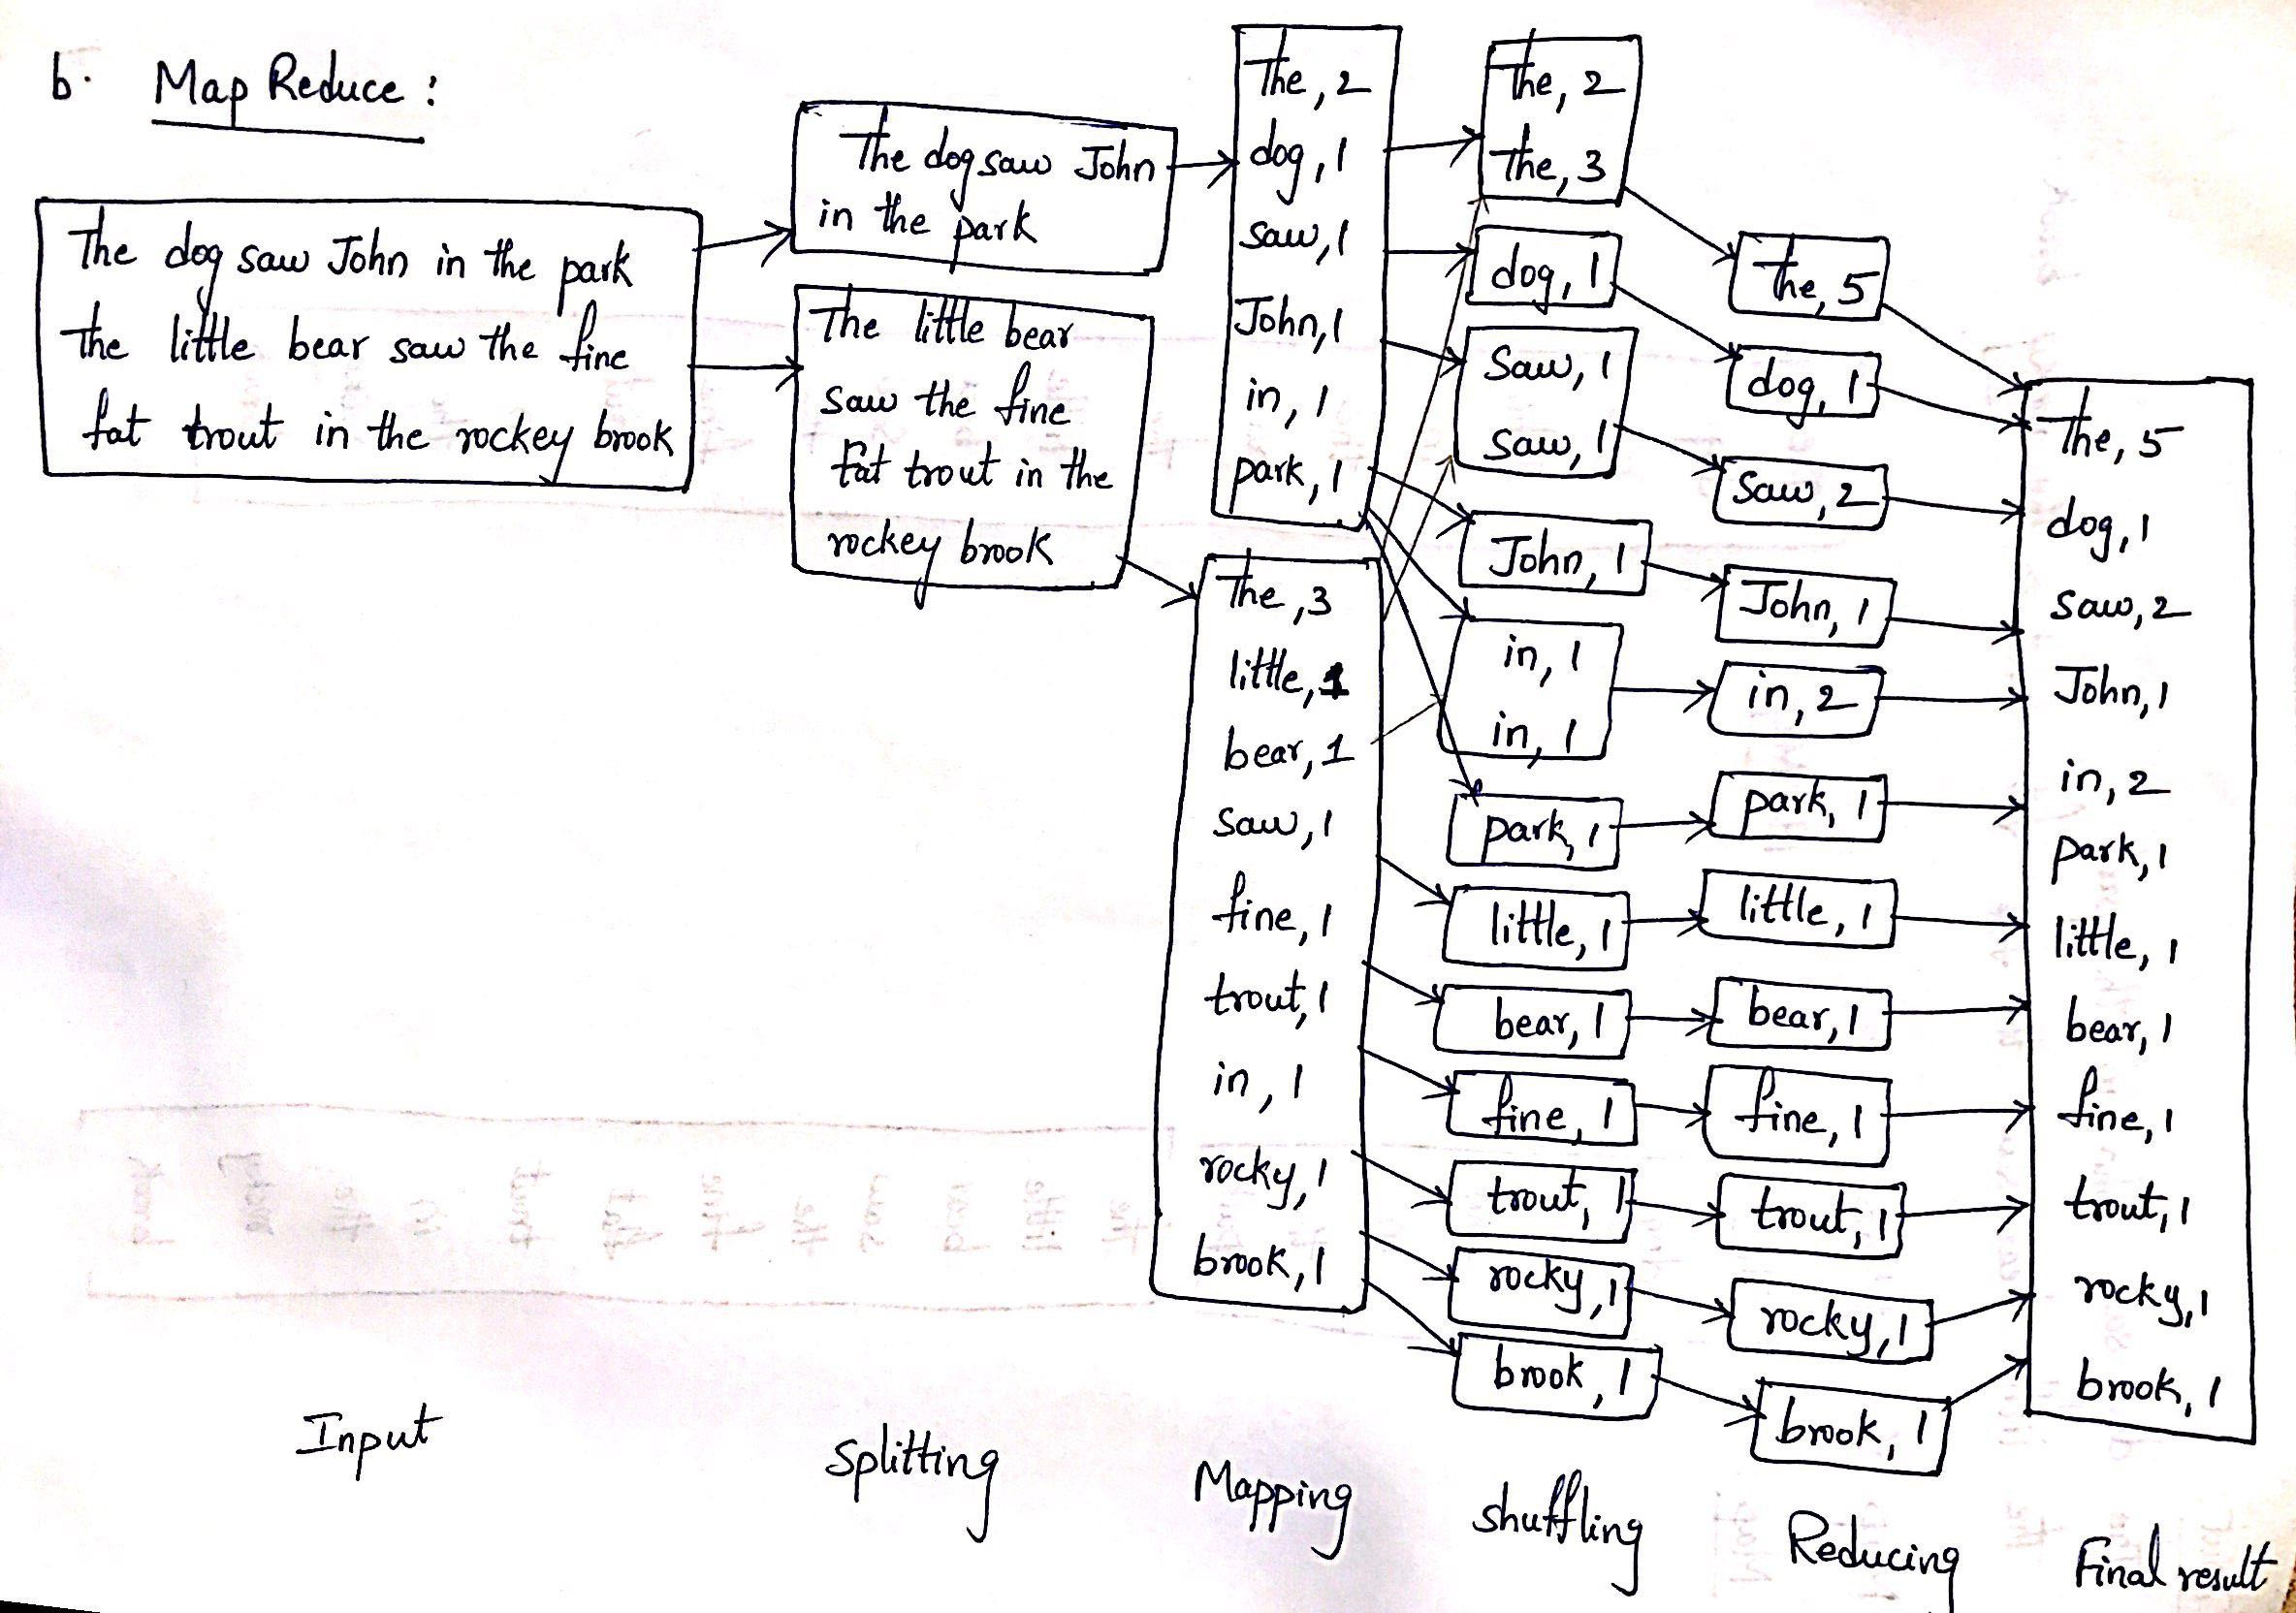 b. Map Reduce :
The dog saw John in the park
the little bear saw the fine
fat trout in the rockey brook
The dog saw John
in the park
The little bear
saw the fine
fat trout in the
rockey brook
The, 2
dog, 1
saw, 1
John, 1
in, 1
park, 1
The, 3
little, 1
bear, 1
saw, 1
fine, 1
trout, 1
in, 1
rocky, 1
brook, 1
The, 2
The, 3
dog, 1
Saw, 1
saw, 1
John, 1
in, 1
in, 1
park, 1
little, 1
bear, 1
fine, 1
trout, 1
rocky, 1
brook, 1
The, 5
dog, 1
Saw, 2
John, 1
in, 2
park, 1
little, 1
bear, 1
fine, 1
trout, 1
rocky, 1
brook, 1
The, 5
dog, 1
saw, 2
John, 1
in, 2
park, 1
little, 1
bear, 1
fine, 1
trout, 1
rocky, 1
brook, 1
Input
Splitting
Mapping
shuffling
Reducing
Final result